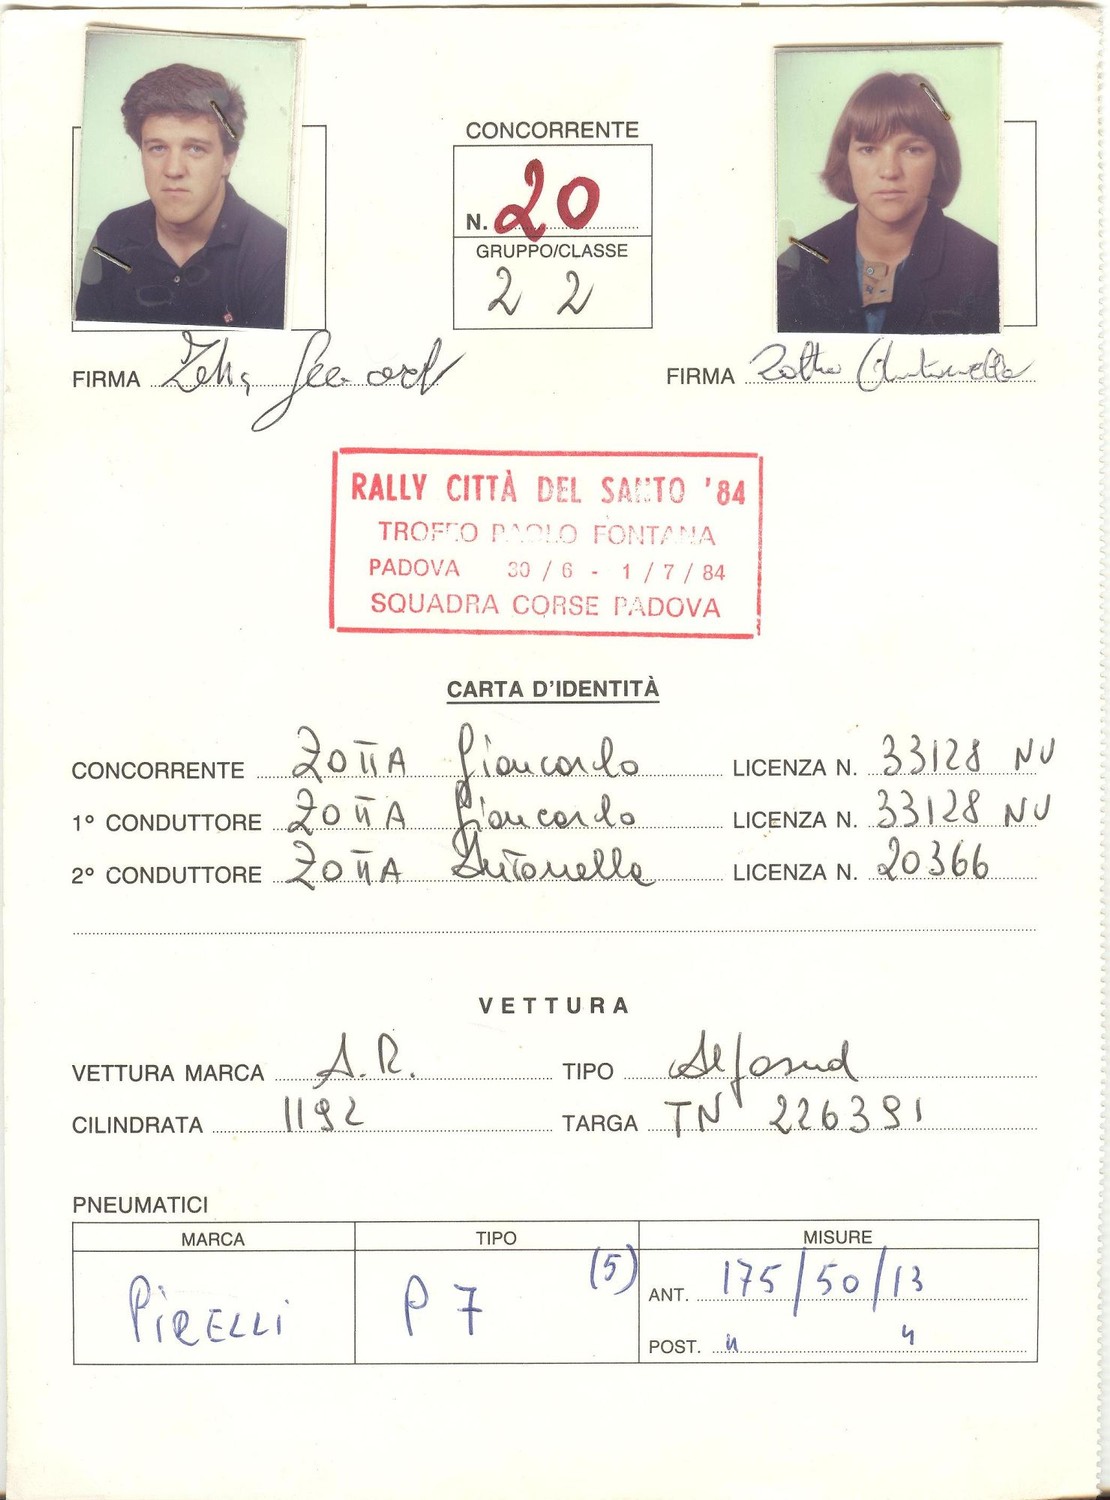 CONCORRENTE
N. 20
GRUPPO/CLASSE
2 2
FIRMA
FIRMA Zotta Antonella
RALLY CITTÀ DEL SANTO '84
TROFEO PAOLO FONTANA
PADOVA 30 / 6 - 1 / 7 / 84
SQUADRA CORSE PADOVA
CARTA D'IDENTITÀ
CONCORRENTE ZOTTA Giancarlo LICENZA N. 33128 NU
1º CONDUTTORE ZOTTA Giancarlo LICENZA N. 33128 NU
2º CONDUTTORE ZOTTA Antonella LICENZA N. 20366
VETTURA
VETTURA MARCA A.R. TIPO Alfasud
CILINDRATA 1192 TARGA TN 226391
PNEUMATICI
MARCA TIPO MISURE
PIRELLI P 7 (5) ANT. 175/50/13
POST. " "